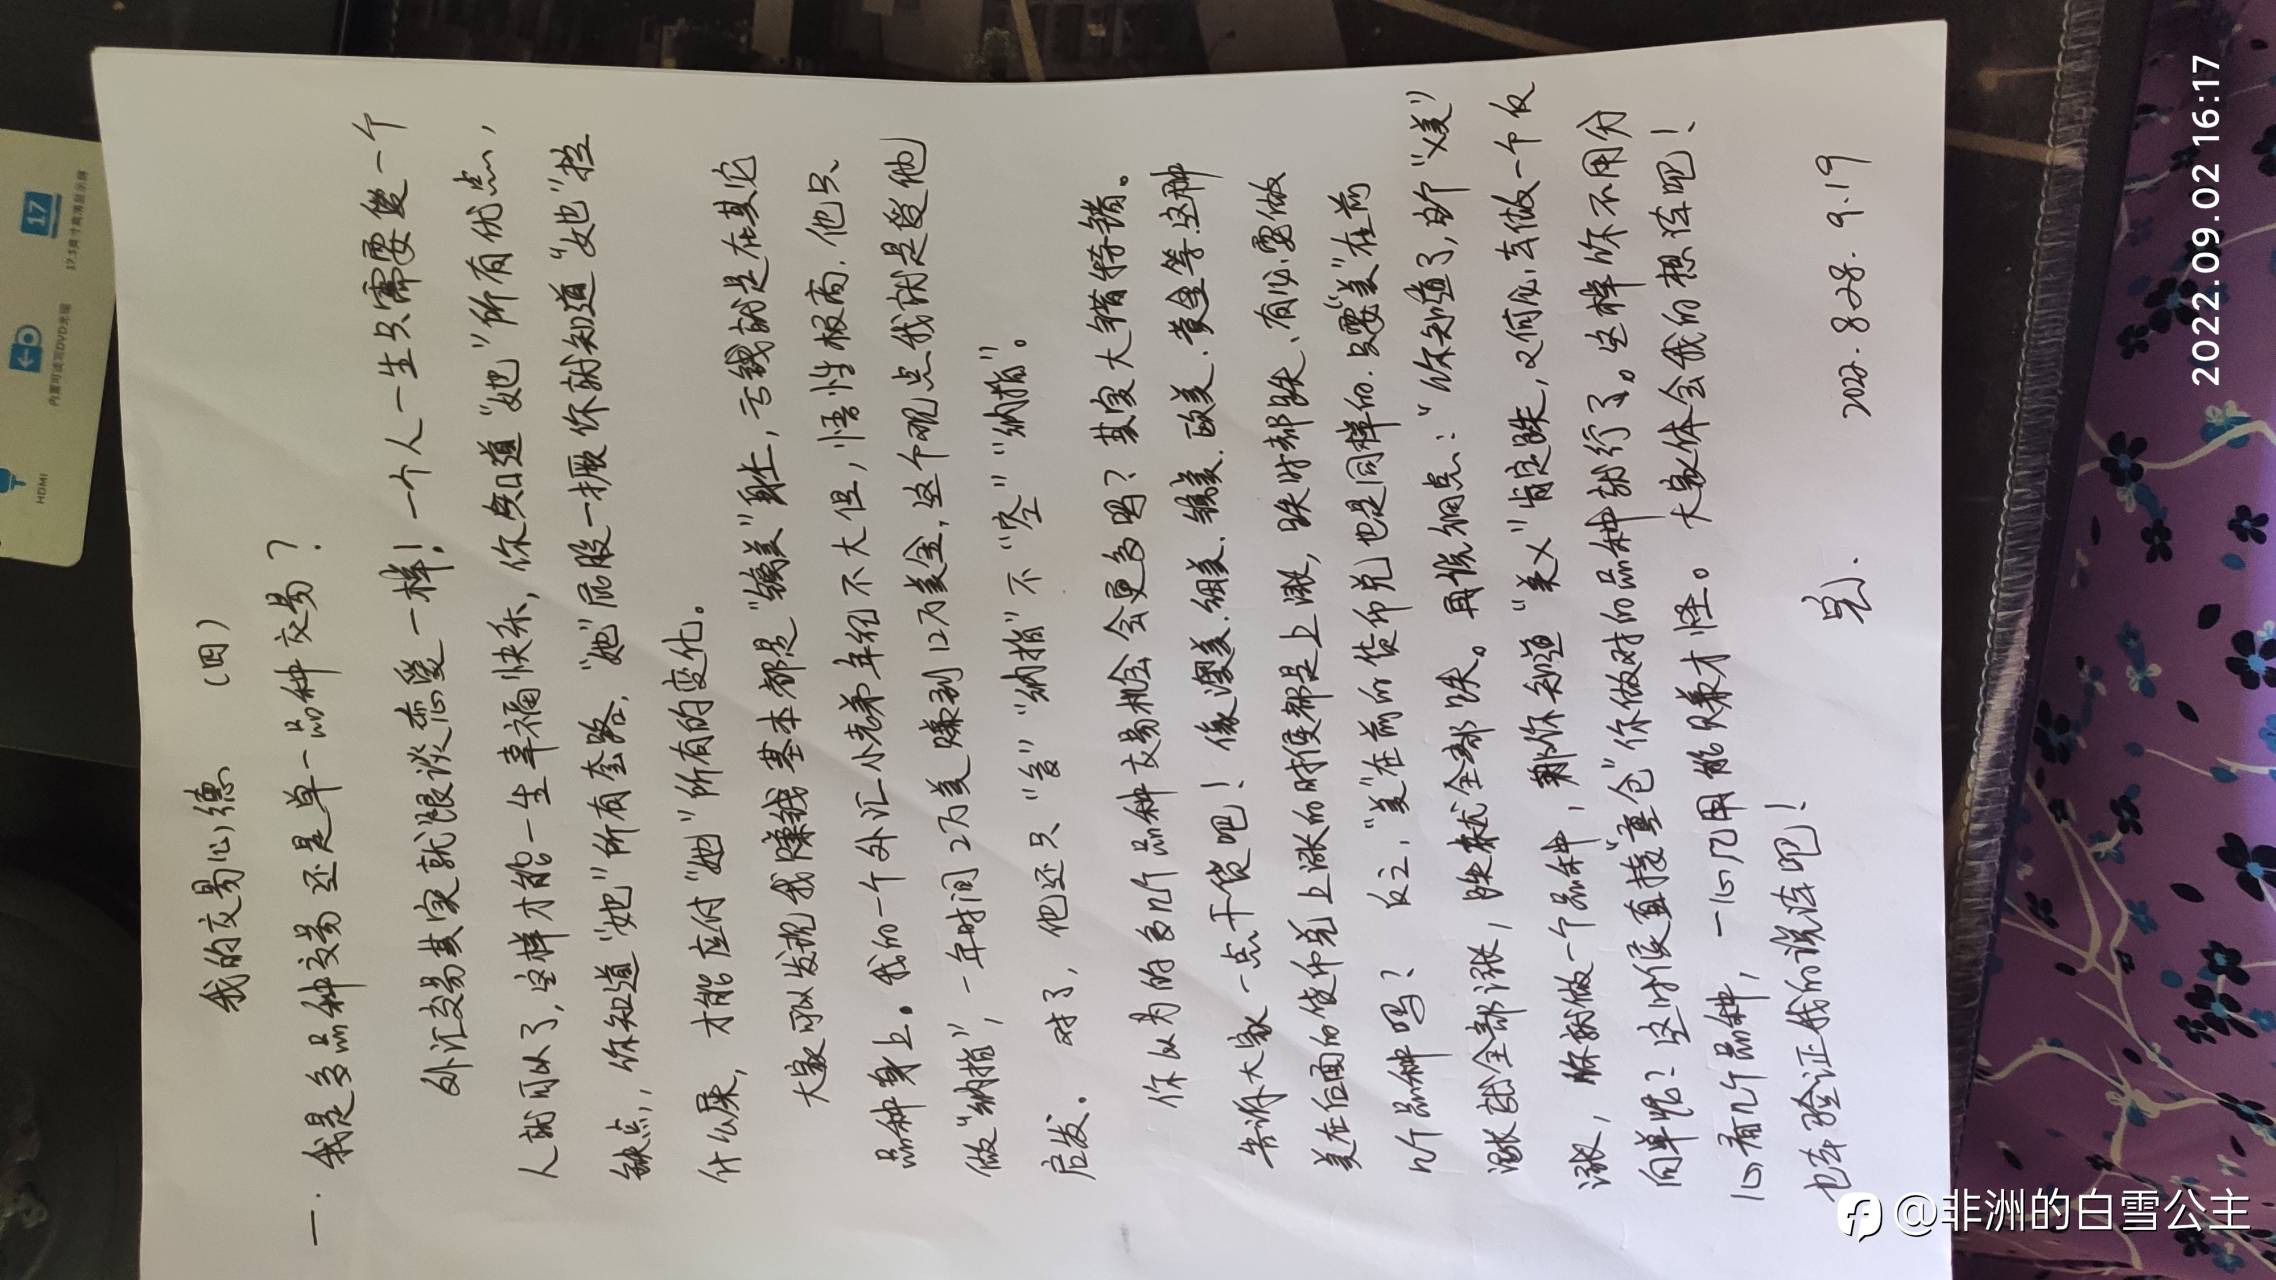 我的交易心德 (四)
一. 我是多品种交易还是单一品种交易?
外汇交易其实就跟谈恋爱一样! 一个人一生只需要爱一个
人就可以了, 这样才能一生幸福快乐, 你知道“她”所有优点,
缺点, 你知道“她”所有套路. “她”屁股一撅你就知道“她”拉
什么屎, 才能应付“她”所有的变化。
大家可以发现我赚钱基本都是“镑美”身上, 亏钱就是在其它
品种身上。我的一个外汇小老弟年纪不大但, 悟性极高. 他只
做“纳指”, 一年时间2万美赚到12万美金, 这个观点我就是受他
启发. 对了, 他还只“多”“纳指”不“空”“纳指”。
你以为的多几个品种交易机会会更多吗? 其实大错特错。
告诉大家一点干货吧! 像澳美. 纽美. 镑美. 欧美. 黄金等这种
美在后面的货币兑上涨的时候都是上涨, 跌时都跌、有必要做
几个品种吗? 反之, “美”在前的货币兑也是同样的. 只要“美”在前
涨就全部涨, 跌就全部跌。再说细点: “你知道了, 由“X美”
涨, 你就做一个品种, 那你知道“美X”肯定跌, 又何必去做一个反
向单呢? 这时候直接“重仓”你做对的品种就行了。这样你不用分
心看几个品种, 一心几用能赚才怪。大家体会我的想法吧!
也去验证我的说法吧!
2022. 8.28. 9.19
17
17.3英寸高清显示屏
内置可读写DVD光驱
HDMI
2022.09.02 16:17
@非洲的白雪公主